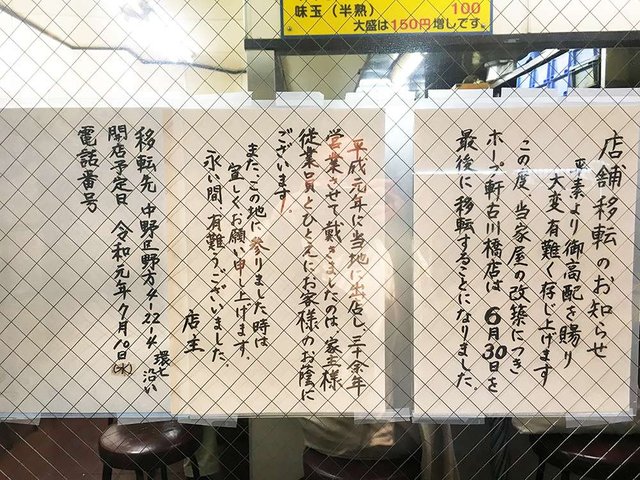 味玉（半熟） 100
大盛は150円増しです。
店舗移転のお知らせ
平素より御高配を賜り
大変有難く存じ上げます
この度、当家屋の改築につき
ホープ軒古川橋店は 6月30日を
最後に移転することになりました。
平成元年に当地に出店し、三十余年
営業させて戴きましたのは、家主様
従業員とひとえにお客様のお蔭に
ございます。
また、この地に参りました時は
宜しくお願い申し上げます。
永い間、有難うございました。
店主
移転先 中野区野方4-22-4 環七沿い
開店予定日 令和元年7月10日(水)
電話番号